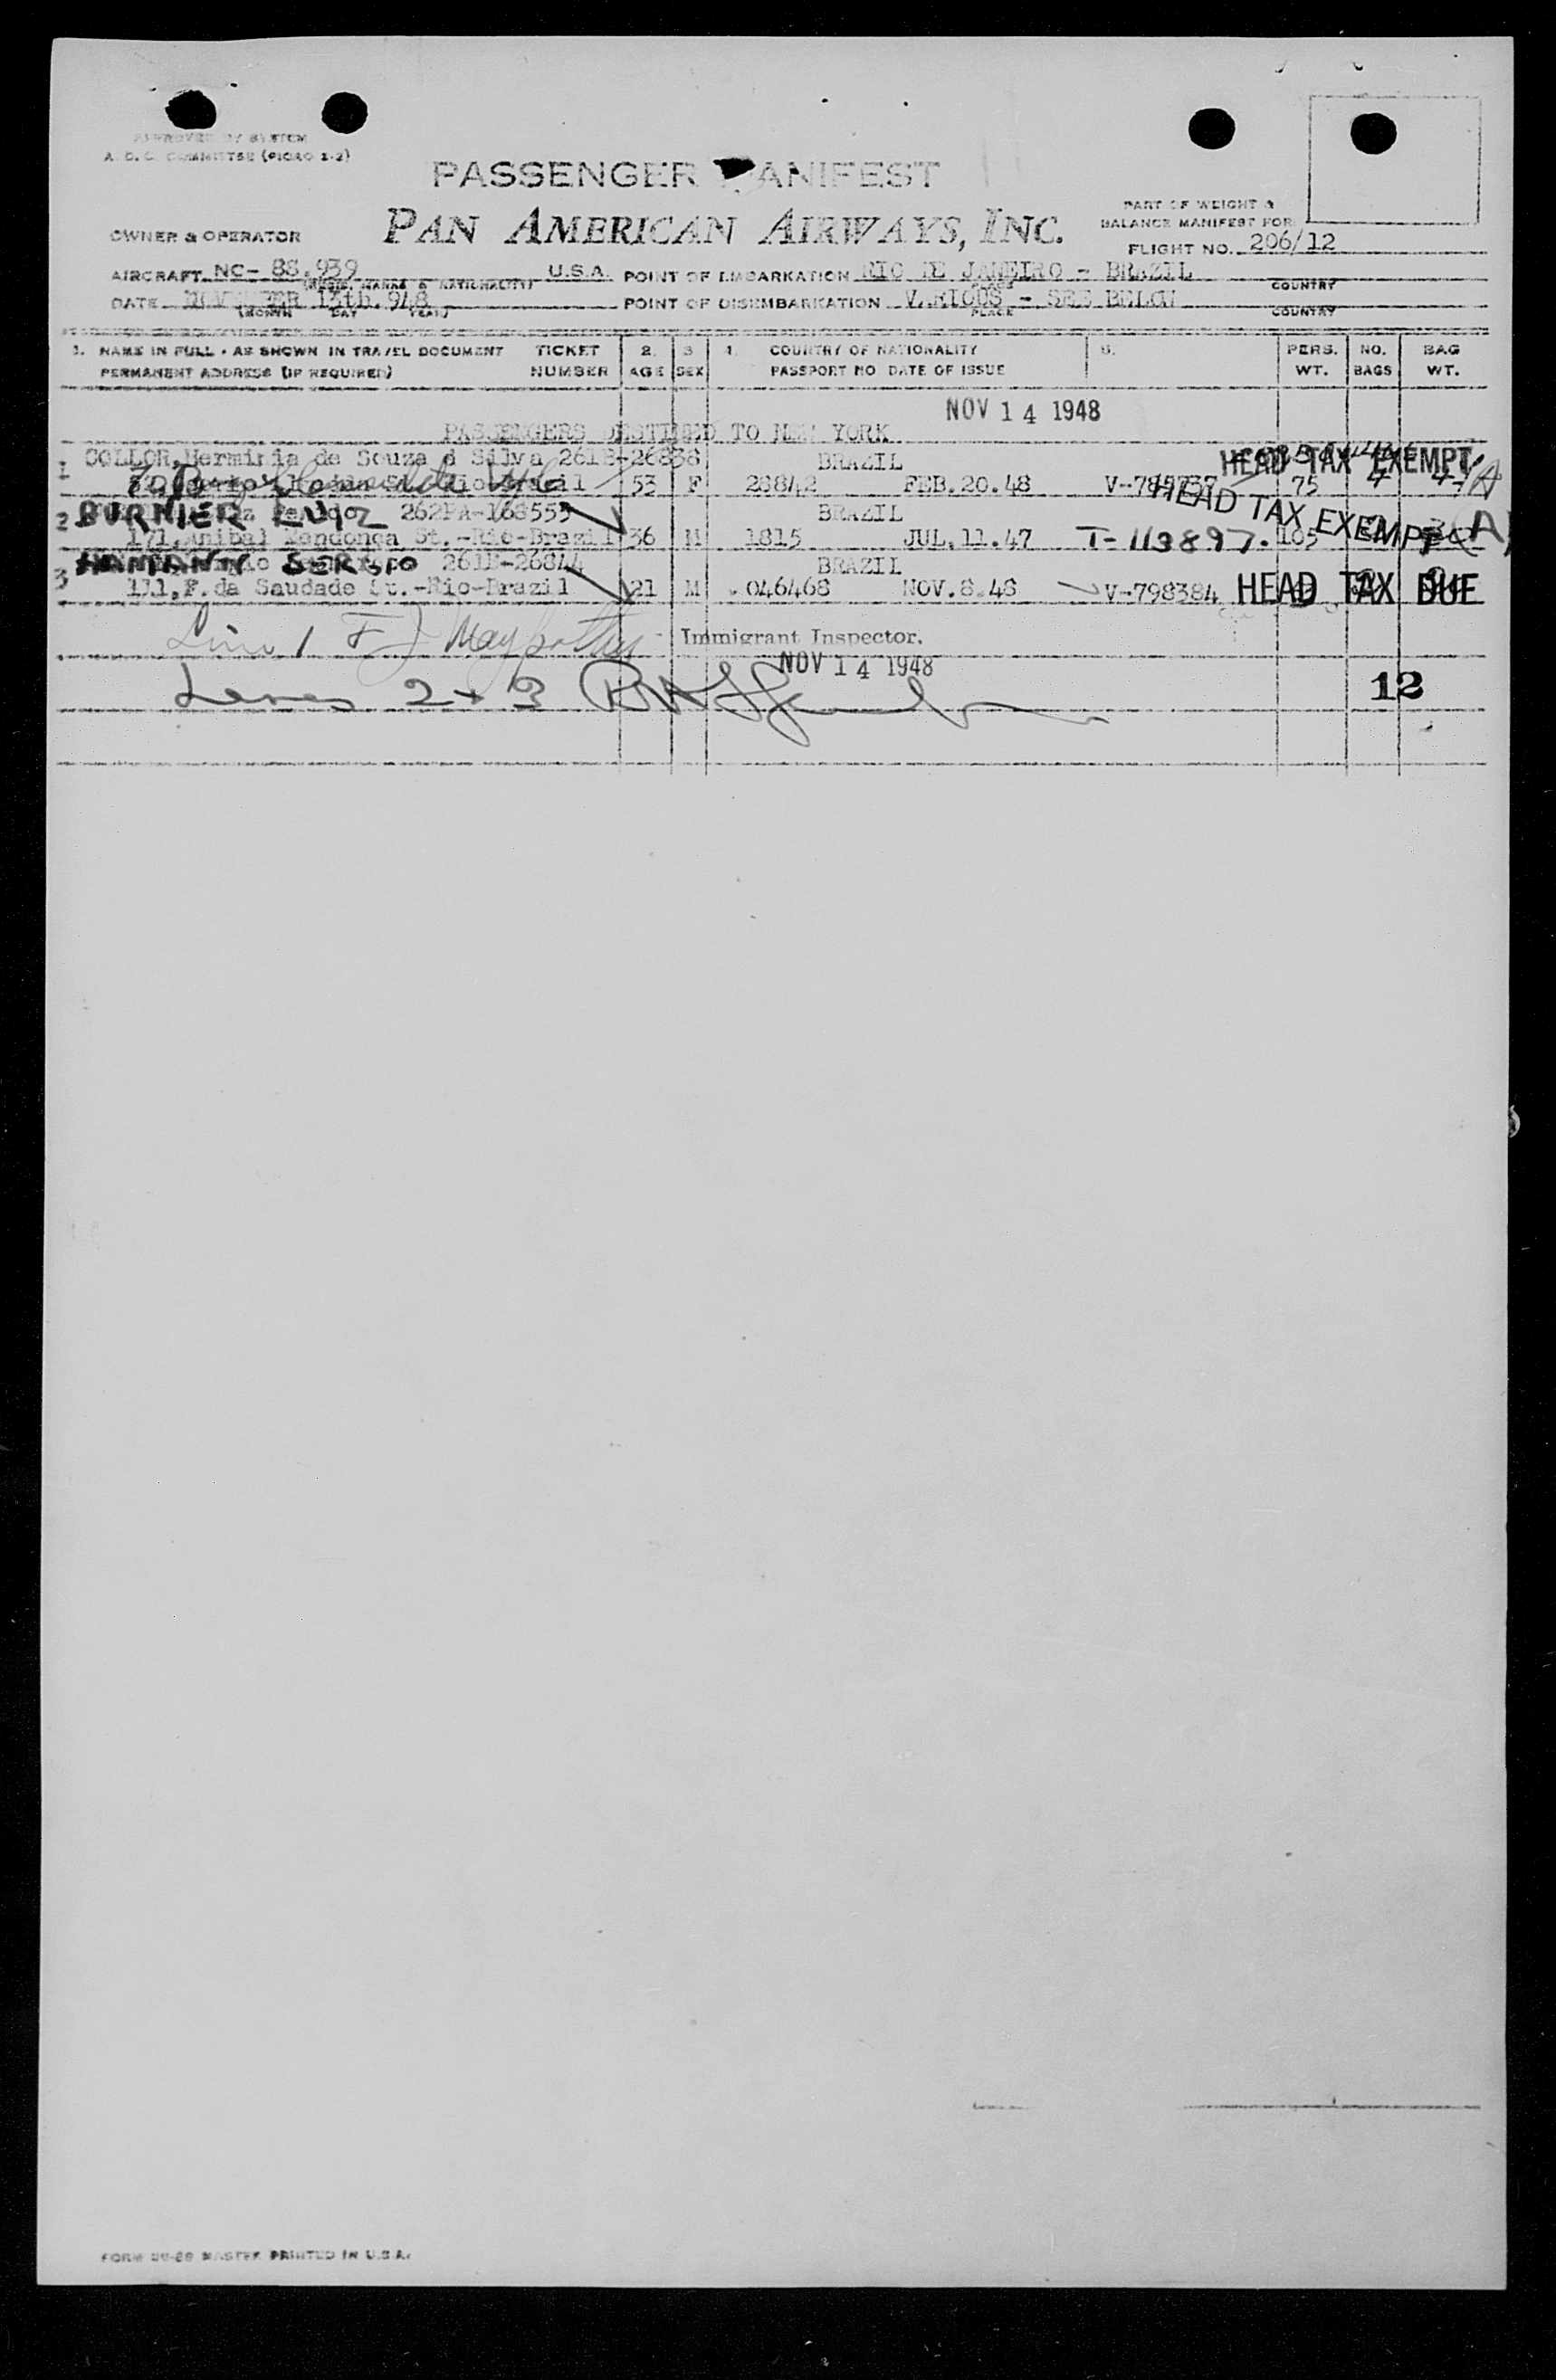 APPROVED BY SYSTEM
A. D. C. COMMITTEE (PICAO 1-2)
PASSENGER MANIFEST
PAN AMERICAN AIRWAYS, INC.
PART OF WEIGHT &
BALANCE MANIFEST FOR
OWNER & OPERATOR
FLIGHT NO. 206/12
AIRCRAFT NC- 88.939 U.S.A. POINT OF EMBARKATION RIO DE JANEIRO - BRAZIL
(REGIS. MARKS & NATIONALITY) PLACE COUNTRY
DATE NOVEMBER 13th. 948 POINT OF DISEMBARKATION VARIOUS - SEE BELOW
(MONTH DAY YEAR) PLACE COUNTRY
1. NAME IN FULL - AS SHOWN IN TRAVEL DOCUMENT TICKET 2. 3 4. COUNTRY OF NATIONALITY 5. PERS. NO. BAG
PERMANENT ADDRESS (IF REQUIRED) NUMBER AGE SEX PASSPORT NO DATE OF ISSUE WT. BAGS WT.
NOV 14 1948
PASSENGERS DESTINED TO NEW YORK
1 COLLOR, Herminia de Souza d Silva 261B-26838 BRAZIL HEAD TAX EXEMPT
53 F 28842 FEB.20.48 75 4
HEAD TAX EXEMPT
2 BURNIER LUIZ 262PA-168555 BRAZIL
171, Anibal Mendonça St.-Rio-Brazil 36 M 1815 JUL.11.47 T-113897. 105
3 SERGIO 261B-26844 BRAZIL
111, F. da Saudade St.-Rio-Brazil 21 M 046468 NOV.8.48 V-798384 HEAD TAX DUE
Line 1 Immigrant Inspector.
NOV 14 1948
Lines 2 + 3
12
MASTER PRINTED IN U.S.A.